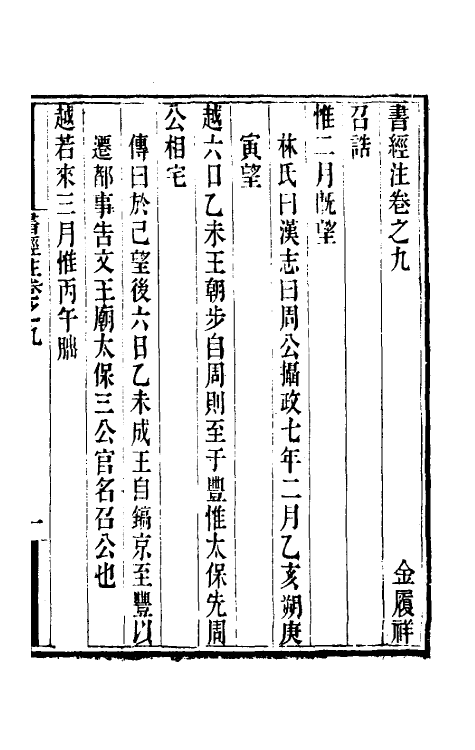 書經注卷之九
金履祥
召誥
惟二月旣望
林氏曰漢志曰周公攝政七年二月乙亥朔庚
寅望
越六日乙未王朝步自周則至于豐惟太保先周
公相宅
傳曰於已望後六日乙未成王自鎬京至豐以
遷都事告文王廟太保三公官名召公也
越若來三月惟丙午朏
書經注卷之九
一